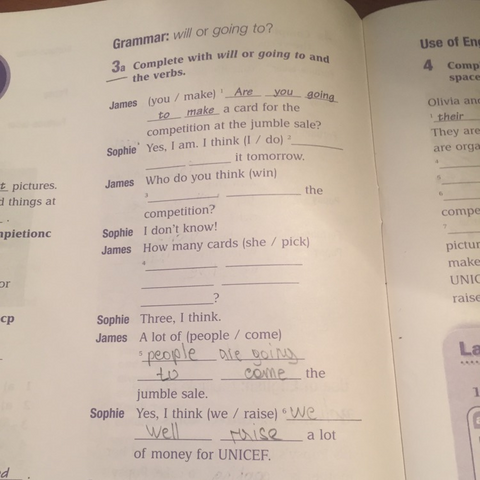 Grammar: will or going to?
3a Complete with will or going to and
the verbs.
James (you / make) ¹ Are you going
to make a card for the
competition at the jumble sale?
Sophie Yes, I am. I think (I / do) ²
it tomorrow.
James Who do you think (win)
³ the
competition?
Sophie I don't know!
James How many cards (she / pick)
⁴
?
Sophie Three, I think.
James A lot of (people / come)
⁵ people are going
to come the
jumble sale.
Sophie Yes, I think (we / raise) ⁶ we
well raise a lot
of money for UNICEF.
pictures.
d things at
apietionc
or
cp
d
Use of En
4 Comp
space
Olivia an
¹ their
They are
are orga
compe
pictur
make
UNIC
raise
La
1